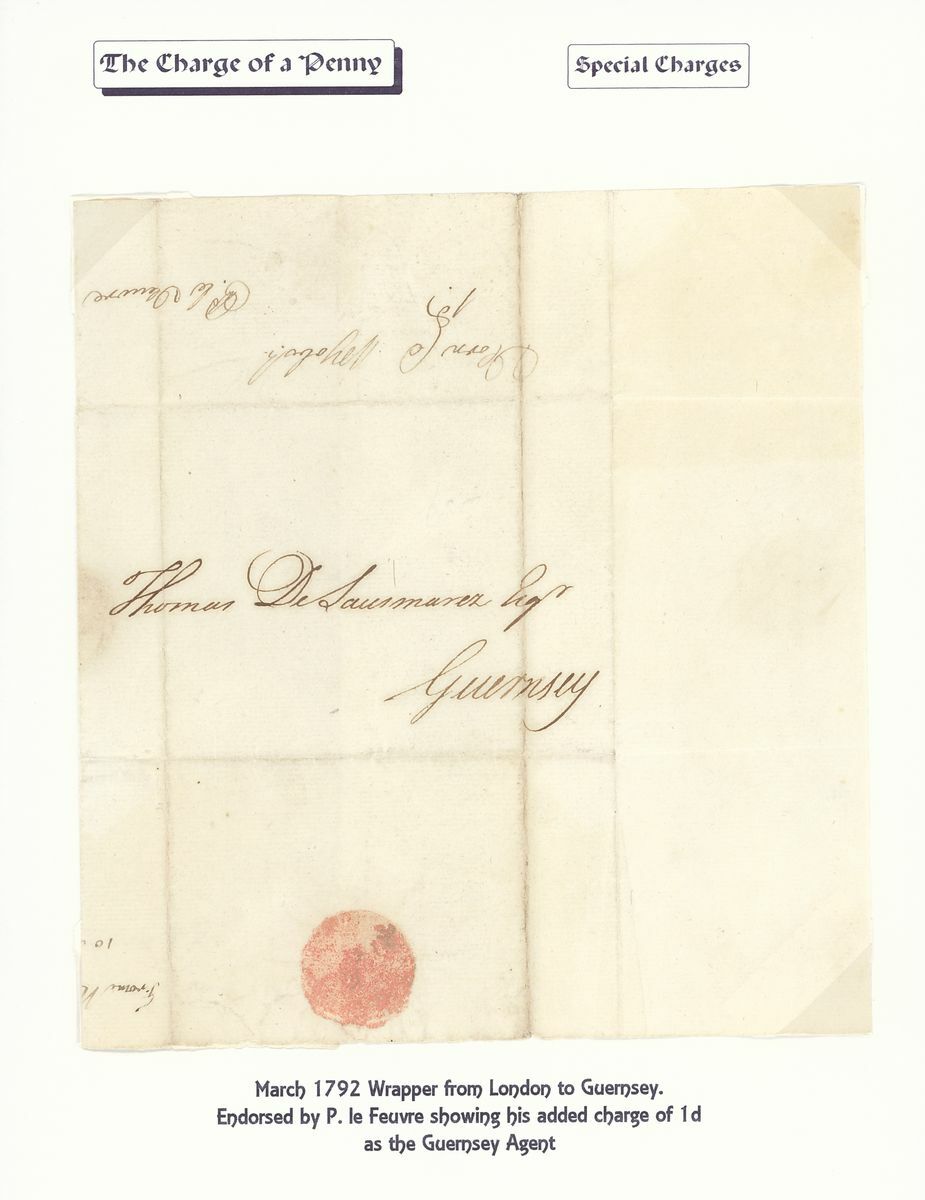 The Charge of a Penny
Special Charges
P. le Feuvre
Thomas De Sausmarez Esqr
Guernsey
10
From
March 1792 Wrapper from London to Guernsey.
Endorsed by P. le Feuvre showing his added charge of 1d
as the Guernsey Agent